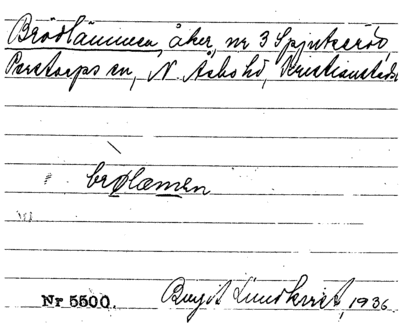 Brödlämmen, åker, nr 3 Spjutseröd,
Perstorps sn, N. Åsbo hd, Kristianstads
brølæmen
Nr 5500. Birgit Lundkvist, 1936.